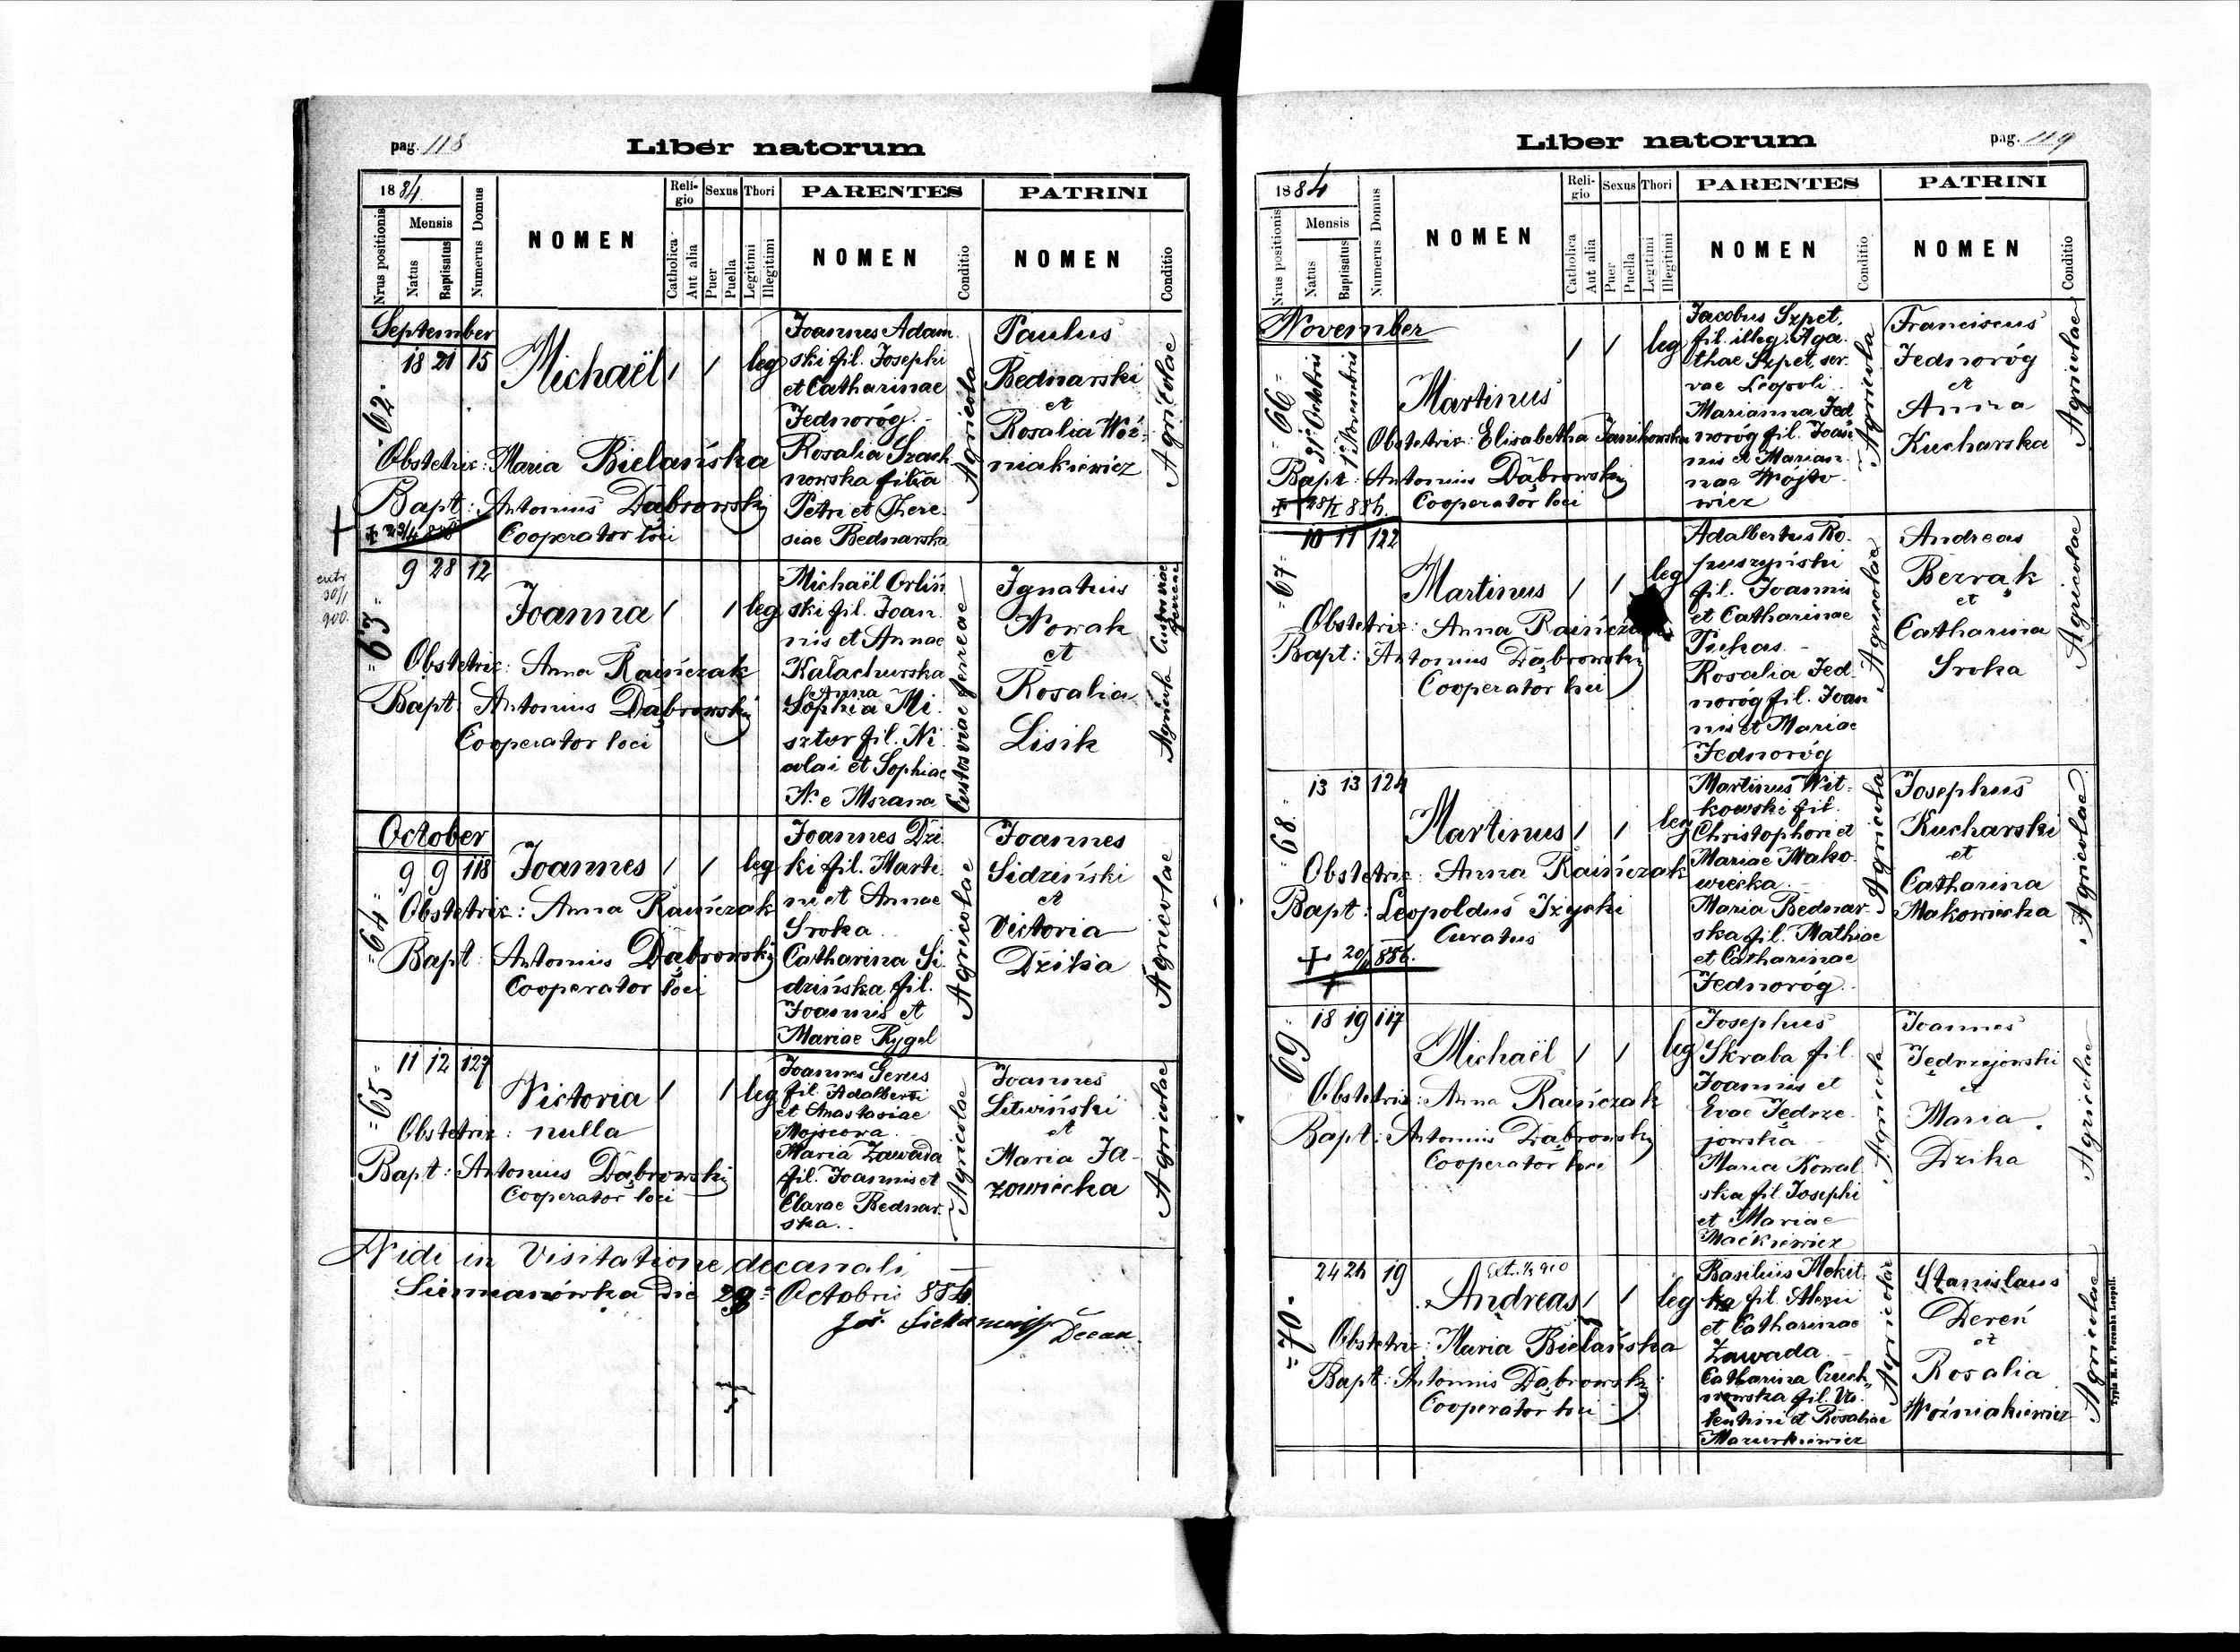 pag. 118
Liber natorum
1884.
Nrus positionis
Mensis
Natus
Baptisatus
Numerus Domus
NOMEN
Religio
Catholica
Aut alia
Sexus
Puer
Puella
Thori
Legitimi
Illegitimi
PARENTES
NOMEN
Conditio
PATRINI
NOMEN
Conditio
September
=62=
18 21 15
Michaël 1 1 leg
Obstetrix: Maria Bielańska
Bapt: Antonius Dąbrowski
Cooperator loci
Joannes Adam
ski fil. Josephi
et Catharinae
Jednoróg.
Rosalia Szach
nowska filia
Petri et There
siae Bednarska
Agricola
Paulus
Bednarski
et
Rosalia Woź-
niakiewicz
Agricolae
extr
30/1
900.
=63=
9 28 12
Joanna 1 1 leg
Obstetrix: Anna Rainczak
Bapt. Antonius Dąbrowski
Cooperator loci
Michaël Orliń
ski fil. Joan
nis et Annae
Kalachurska
Anna
Sophia Mi
sztur fil. Ni
colai et Sophiae
N. e Mszana
Custos viae ferreae
Ignatius
Nowak
et
Rosalia
Lisik
Agricola Custos viae ferreae
October
=64=
9 9 118
Joannes 1 1 leg
Obstetrix: Anna Rainczak
Bapt: Antonius Dąbrowski
Cooperator loci
Joannes Dzi
ki fil. Marti
ni et Annae
Sroka
Catharina Si
dzińska fil.
Joannis et
Mariae Rygel
Agricolae
Joannes
Sidziński
et
Victoria
Dzika
Agricolae
=65=
11 12 127
Victoria 1 1 leg
Obstetrix: nulla
Bapt: Antonius Dąbrowski
Cooperator loci
Joannes Gerus
fil. Adalberti
et Anastasiae
Maria Zawada
fil. Joannis et
Clarae Bednar
ska.
Agricolae
Joannes
Litwiński
et
Maria Ja-
zowiecka
Agricolae
Vidi in Visitatione decanali
Siemianówka die 29 Octobris 884
Decan.
pag. 119
Liber natorum
1884
Nrus positionis
Mensis
Natus
Baptisatus
Numerus Domus
NOMEN
Religio
Catholica
Aut alia
Sexus
Puer
Puella
Thori
Legitimi
Illegitimi
PARENTES
NOMEN
Conditio
PATRINI
NOMEN
Conditio
November
=66=
31 Octobris
1 Novembris
Martinus 1 1 leg
Obstetrix: Elisabetha Janikowska
Bapt: Antonius Dąbrowski
Cooperator loci
Jacobus Szpet,
fil. illeg. Aga
thae Szpet, ser
vae Leopoli
Marianna Jed
noróg fil. Joan
nis et Marian
nae Wójto
wicz
Agricola
Franciscus
Jednoróg
et
Anna
Kucharska
Agricolae
=67=
10 11 122
Martinus 1 1 leg
Obstetrix: Anna Rainczak
Bapt: Antonius Dąbrowski
Cooperator loci
Adalbertus Ko
puszyński
fil. Joannis
et Catharinae
Puhas.
Rosalia Jed
noróg fil. Joan
nis et Mariae
Jednoróg
Agricolae
Andreas
et
Catharina
Sroka
Agricolae
=68=
13 13 124
Martinus 1 1 leg
Obstetrix: Anna Rainczak
Bapt: Leopoldus Iżycki
Curatus
Martinus Wit-
kowski fil.
Christophori et
Mariae Mako
wiecka.
Maria Bednar
ska fil. Mathiae
et Catharinae
Jednoróg.
Agricola
Josephus
Kucharski
et
Catharina
Makowiecka
Agricolae
69=
18 19 117
Michaël 1 1 leg
Obstetrix: Anna Rainczak
Bapt: Antonius Dąbrowski
Cooperator loci
Josephus
Skraba fil.
Joannis et
Evae Jędrze
jowska
Maria Kowal
ska fil. Josephi
et Mariae
Maćkiewicz
Agricolae
Joannes
Jędrzejowski
et
Maria
Dzika
Agricolae
=70=
24 26 19
Andreas 1 1 leg
Obstetrix: Maria Bielańska
Bapt: Antonius Dąbrowski
Cooperator loci
Basilius Mekit
ka fil. Alexii
et Catharinae
Zawada
Catharina Czech
nowska fil. Va
lentini et Rosaliae
Mazurkiewicz
Agricolae
Stanislaus
Dereń
et
Rosalia
Woźniakiewicz
Agricolae